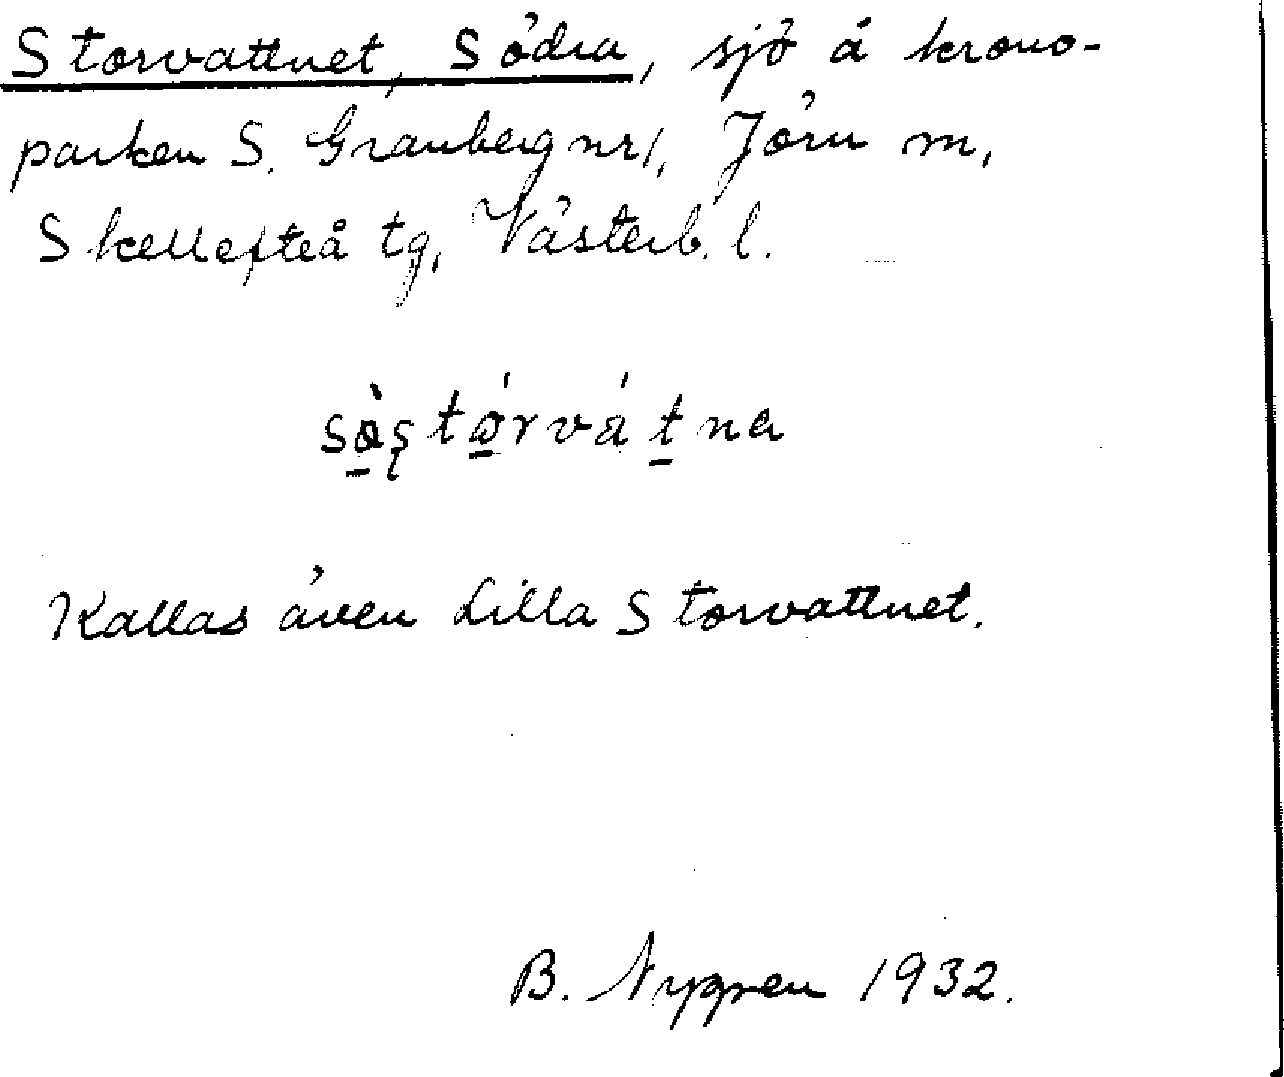 Storvattnet, Södra, sjö å krono-
parken S. Granberg nr 1, Jörn m,
Skellefteå tg, Västerb. l.
sà̱ş tǿ̱rváṯna
Kallas även Lilla Storvattnet.
B. Nygren 1932.